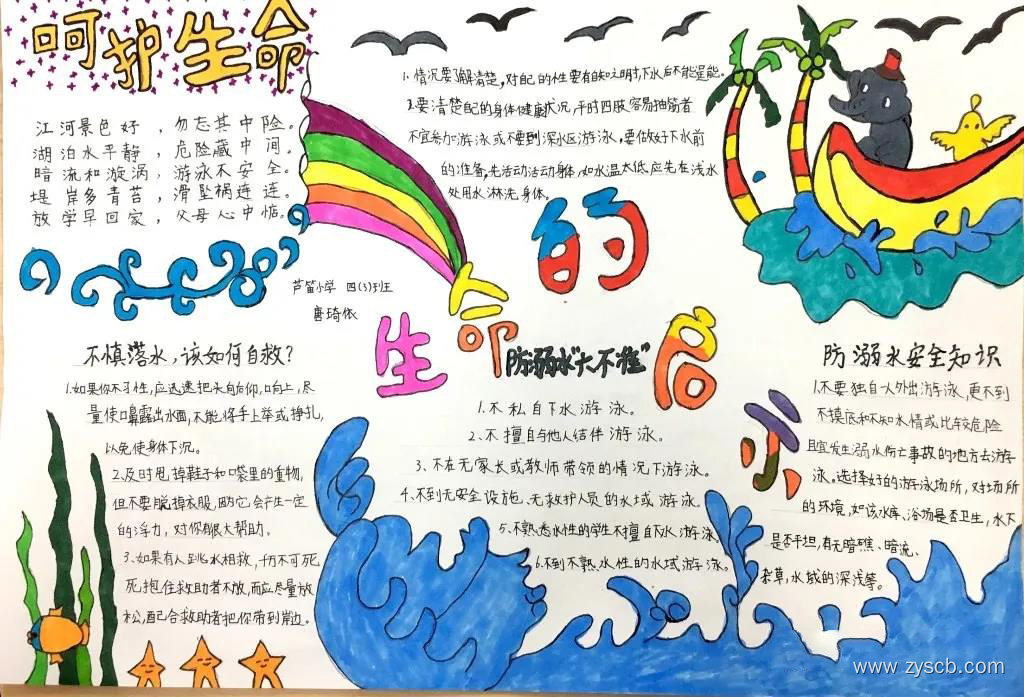 呵护生命
江河景色好，勿忘其中险。
湖泊水平静，危险藏中间。
暗流和漩涡，游泳不安全。
堤岸多青苔，滑坠祸连连。
放学早回家，父母心中惦。
1.情况要了解清楚，对自己的水性要有自知之明，下水后不能逞能。
2.要清楚自己的身体健康状况，平时四肢容易抽筋者
不宜参加游泳或不要到深水区游泳，要做好下水前
的准备，先活动活动身体，如水温太低应先在浅水
处用水淋洗身体。
芦笛小学 四(3)班
唐琦侬
生命的启示
不慎落水，该如何自救？
1.如果你不习水性，应迅速把头向后仰，口向上，尽
量使口鼻露出水面，不能将手上举或挣扎，
以免使身体下沉。
2.及时甩掉鞋子和口袋里的重物，
但不要脱掉衣服，因为它会产生一定
的浮力，对你有很大帮助。
3.如果有人跳水相救，千万不可死
死抱住救助者不放，而应尽量放
松，配合救助者把你带到岸边。
防溺水“六不准”
1.不私自下水游泳。
2.不擅自与他人结伴游泳。
3.不在无家长或教师带领的情况下游泳。
4.不到无安全设施、无救护人员的水域游泳。
5.不熟悉水性的学生不擅自下水游泳。
6.不到不熟水性的水域游泳。
防溺水安全知识
1.不要独自一人外出游泳，更不到
不摸底和不知水情或比较危险
且宜发生溺水伤亡事故的地方去游
泳。选择好的游泳场所，对场所
的环境，如该水库、浴场是否卫生，水下
是否平坦，有无暗礁、暗流、
杂草，水域的深浅等。
www.zyscb.com